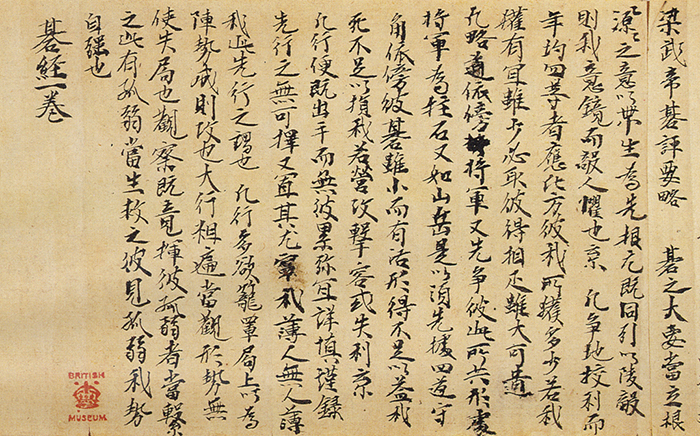 梁武帝碁評要略 碁之大要當立根
源々之意以帶生為先根元既固引以陵敵
則我意鏡而敵人懼也京 凡爭地挍利而
年均者應比方彼我所獲多少若我
獲有冝雖少必取彼得相疋雖大可遺
凡略道依傍將軍又先爭彼此所共形處
將軍為柱石又如山岳是以須先據四道守
角依傍彼碁雖小而有活形得不足以益我
死不足以損我若營攻擊容或失利京
凡行使既出手而無彼累弥冝詳填謹錄
先行之無可擇又冝其尤寧我薄人無人薄
我此先行之謂也 凡行多欲籠罩局上以為
陣勢成則攻也大行粗遍當觀形勢無
使失局也觀察既竟揮彼孤弱者當擊
之此有孤弱當生救之彼見孤弱我勢
自強也
碁經一卷
BRITISH
MUSEUM